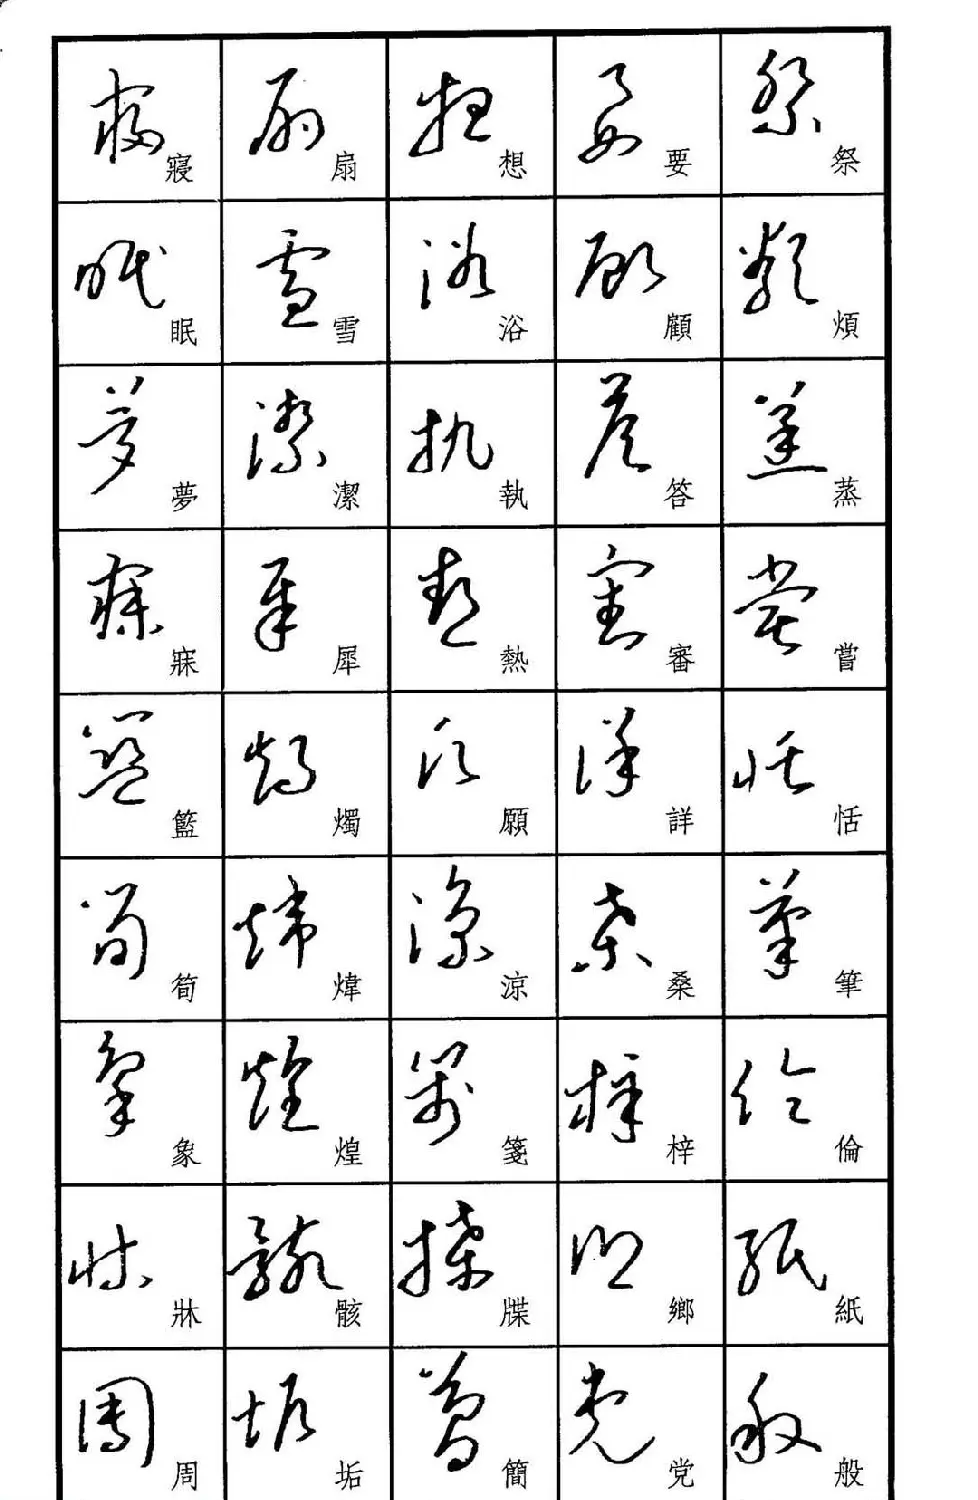 寢 扇 想 要 祭
眠 雪 浴 顧 煩
夢 潔 執 答 蒸
寐 犀 熱 審 嘗
籃 燭 願 詳 恬
筍 煒 涼 桑 筆
象 煌 箋 梓 倫
牀 骸 牒 鄉 紙
周 垢 簡 党 般